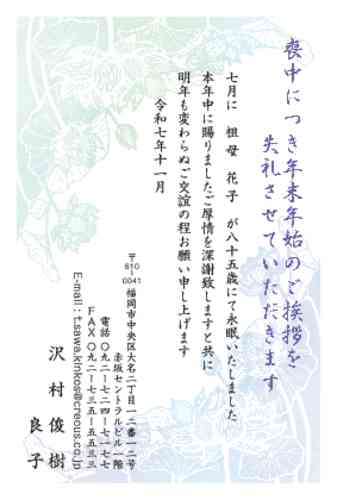 喪中につき年末年始のご挨拶を
失礼させていただきます
七月に 祖母 花子 が八十五歳にて永眠いたしました
本年中に賜りましたご厚情を深謝致しますと共に
明年も変わらぬご交誼の程お願い申し上げます
令和七年十一月
〒810-0041 福岡市中央区大名二丁目一二番一二号
赤坂セントラルビル一階
電話 〇九二-七二四-七一七七
FAX 〇九二-七三五-五五三三
E-mail : t.sawa.kinkos@creous.co.jp
沢村 俊樹
良子